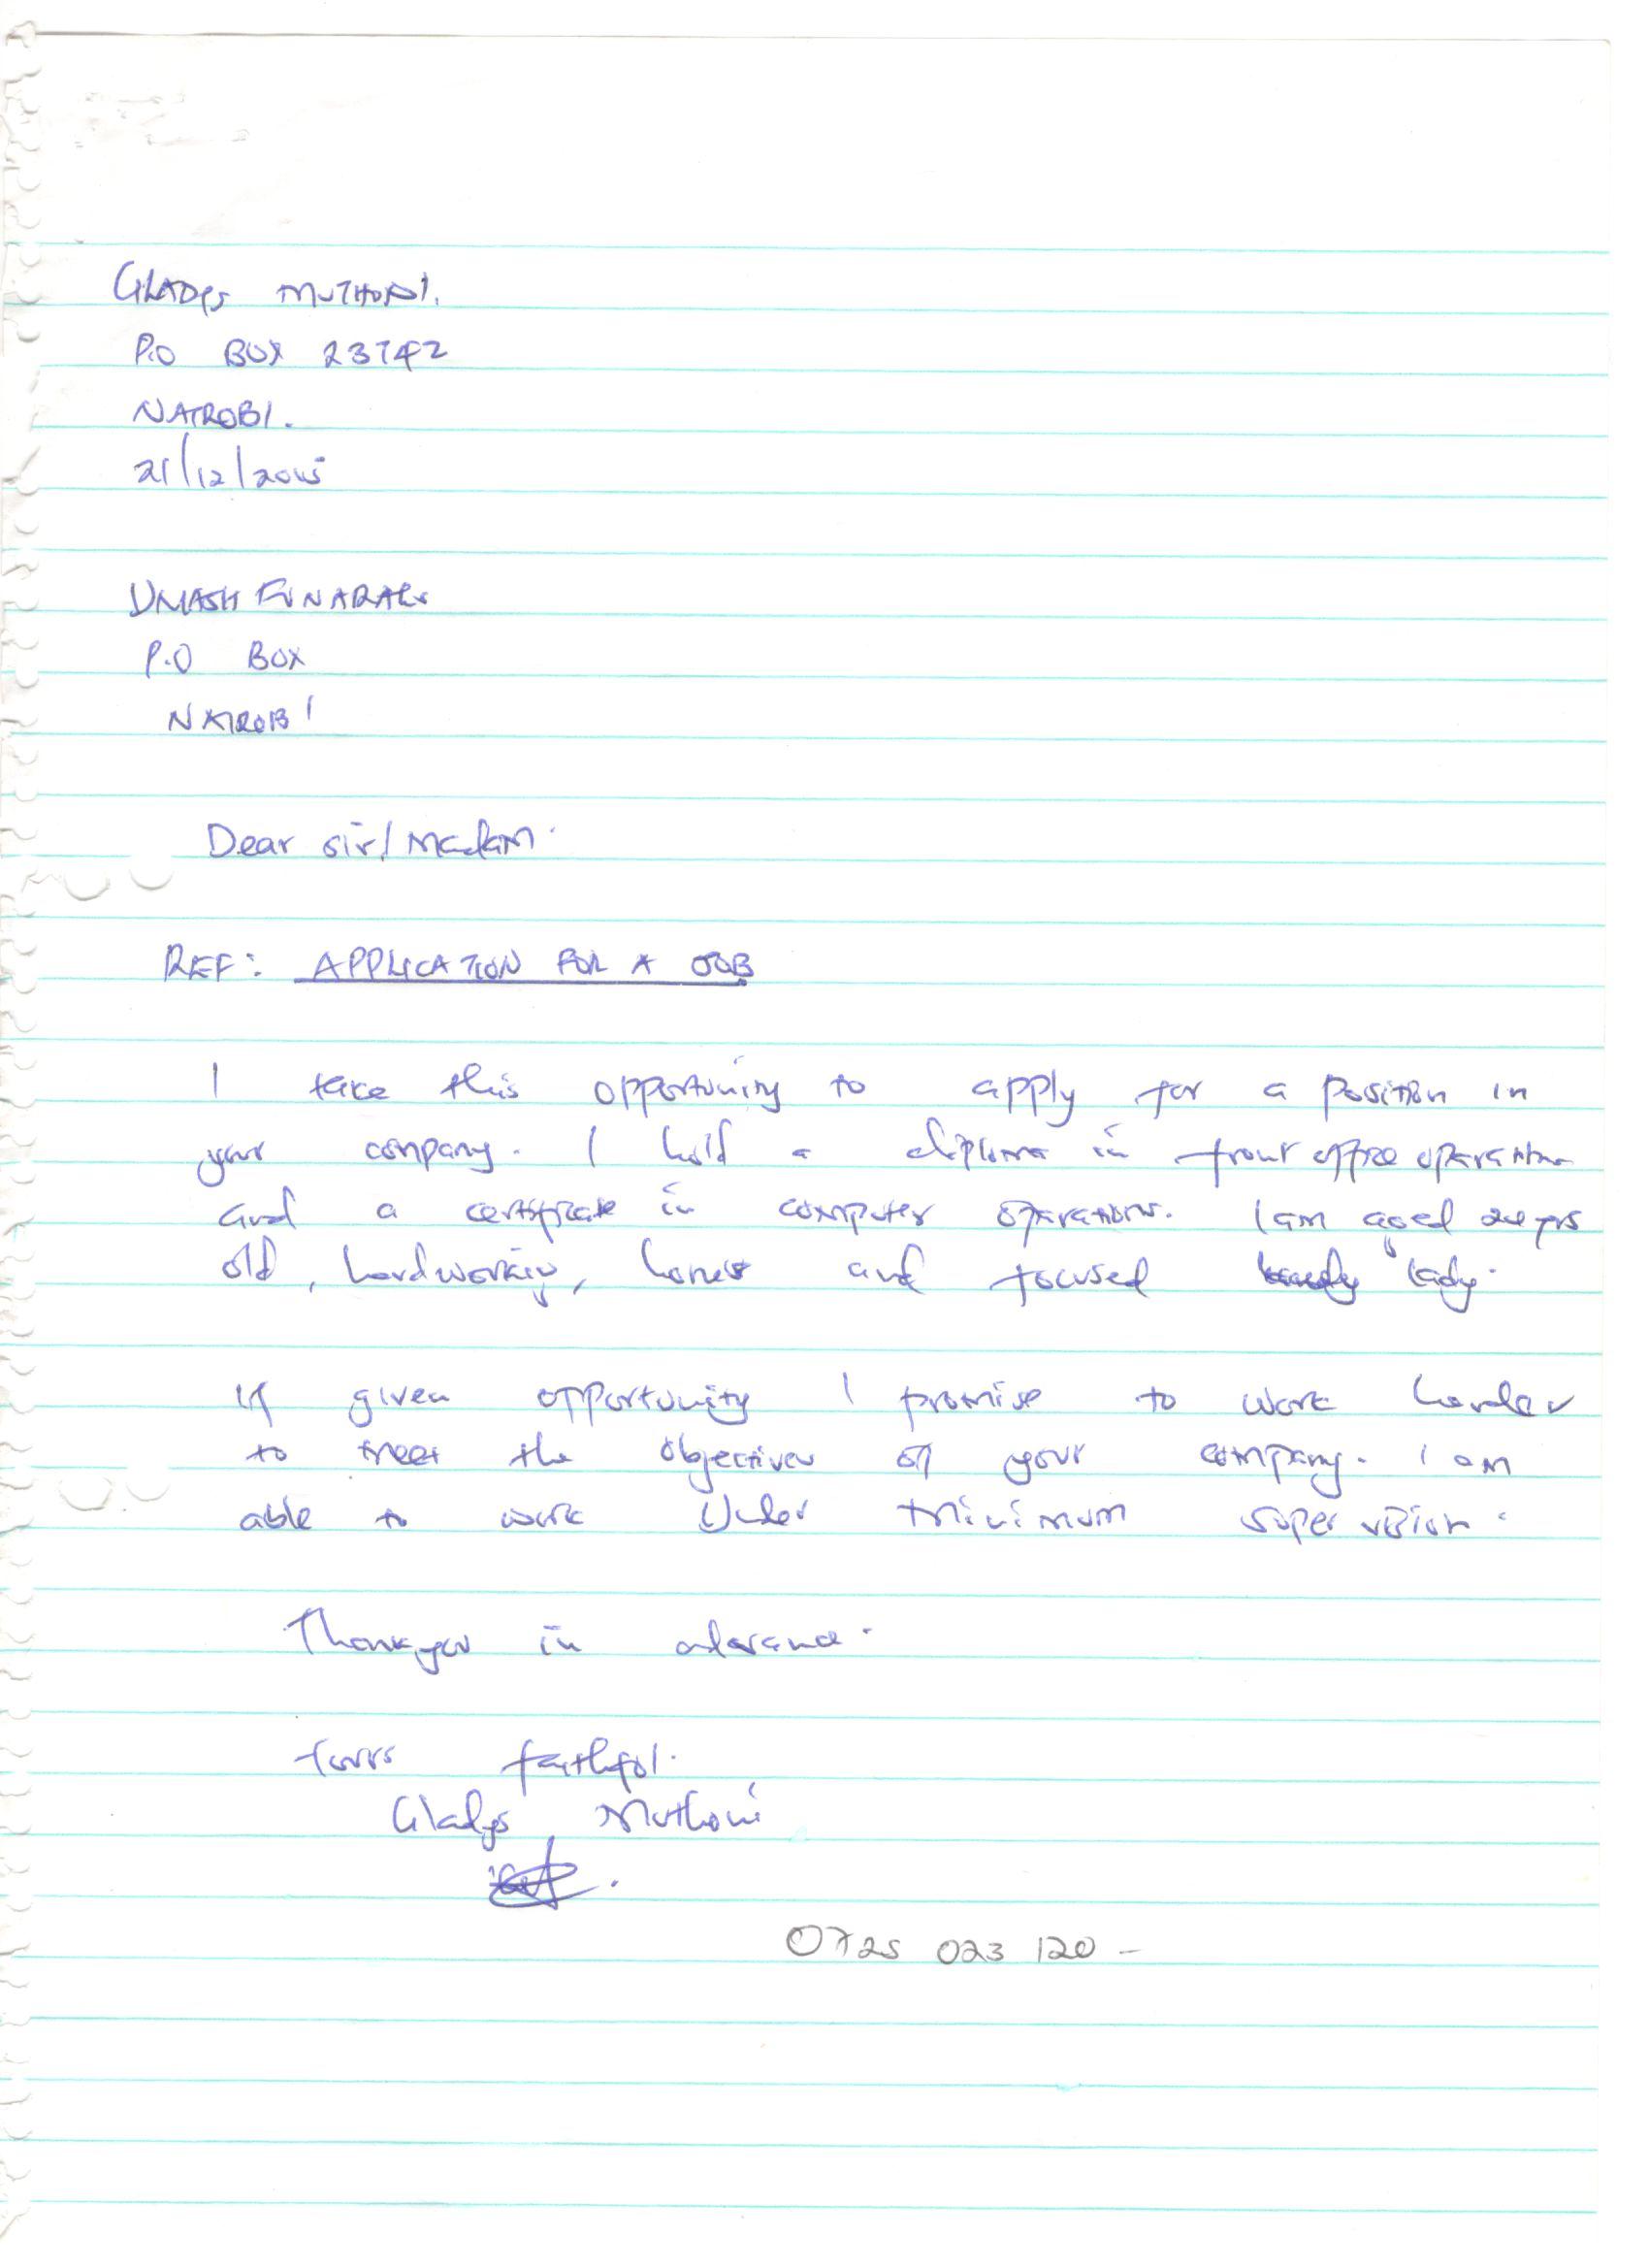 GLADYS MUTHONI.
P.O BOX 23742
NAIROBI.
21/12/2015
UMASH FUNARALS
P.O BOX
NAIROBI
Dear sir/ Madam.
REF: APPLICATION FOR A JOB
I take this opportunity to apply for a position in
your company. I hold a diploma in front office operation
and a certificate in computer operations. I am aged yrs
old, hardworking, honest and focused lady.
If given opportunity I promise to work harder
to meet the objectives of your company. I am
able to work Under minimum supervision.
Thankyou in advance.
Yours faithful.
Gladys Muthoni
0725 023 120 -